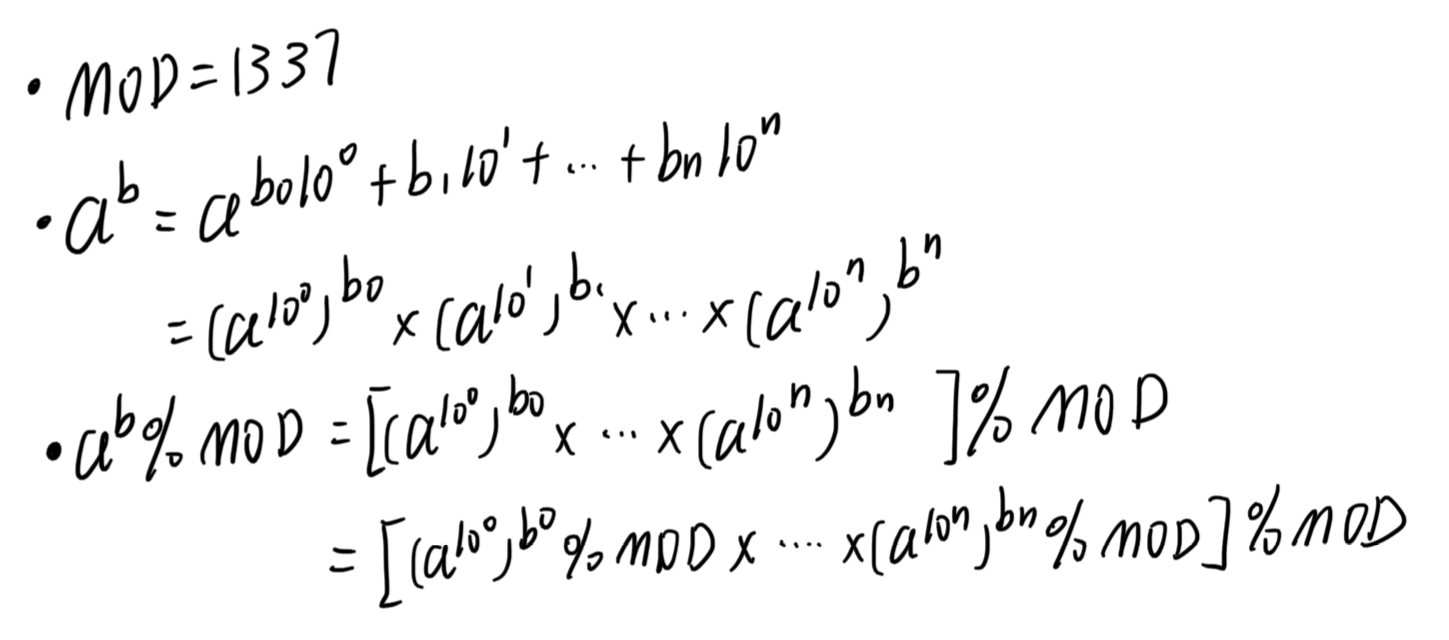 · MOD=1337
· a^b = a^{b0 10^0 + b1 10^1 + ... + bn 10^n}
= (a^{10^0})^{b0} × (a^{10^1})^{b1} × ... × (a^{10^n})^{b^n}
· a^b % MOD = [(a^{10^0})^{b0} × ... × (a^{10^n})^{bn} ] % MOD
= [(a^{10^0})^{b0} % MOD × .... × (a^{10^n})^{bn} % MOD] % MOD